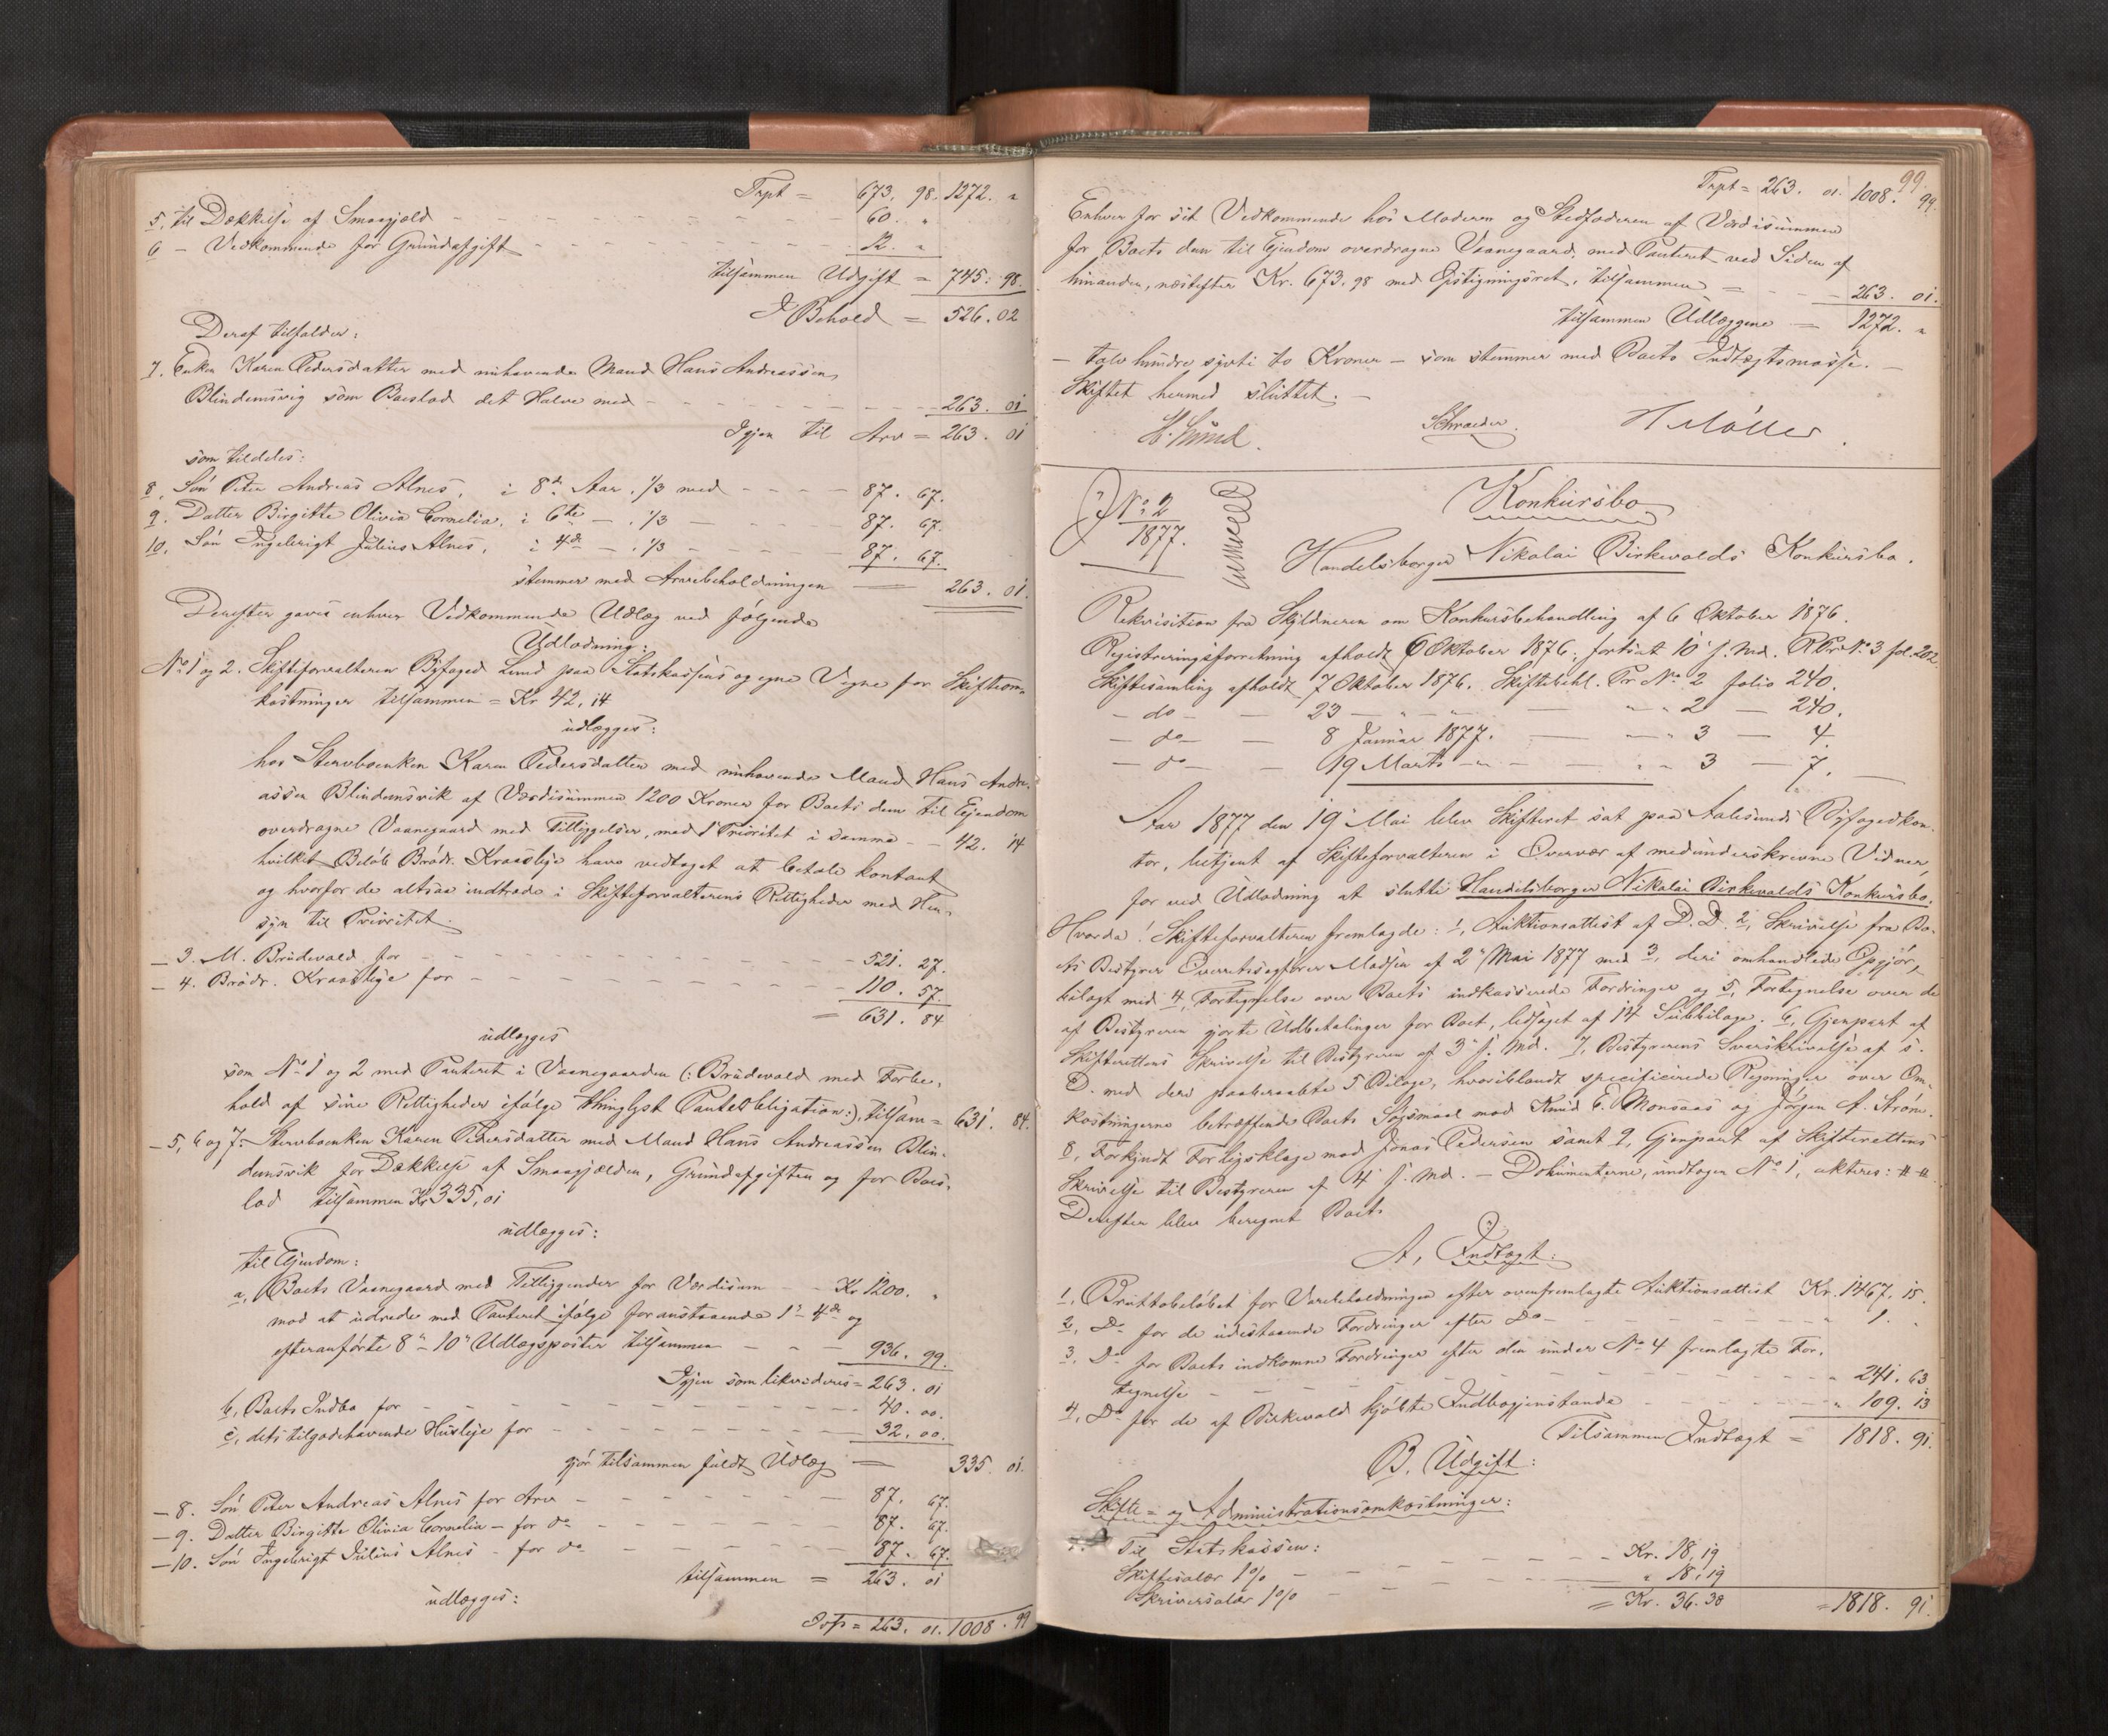 Trpt = 673. 98. 1272. "
5, til Dækkelse af Smaagjæld - - - 60. "
6 - Vedkommende for Grundafgift - - - 12. "
tilsammen Udgift = 745. 98.
I Behold = 526. 02
Deraf tilfalder:
7. Enken Karen Pedersdatter med nuhavende Mand Hans Andreassen
Blindemsvig som Boeslod det Halve med - - - 263. 01
Igjen til Arv = 263. 01
som tildeles:
8, Søn Peter Andreas Alnes, i 8de Aar, 1/3 med - - - 87. 67.
9. Datter Birgitte Olivia Cornelia, i 6te - , 1/3 - - - 87. 67.
10, Søn Ingebrigt Julius Alnes, i 4de - , 1/3 - - - 87. 67.
stemmer med Arvebeholdningen - 263. 01.
Derefter gaves enhver Vedkommende Udlæg ved følgende
Udlodning:
No 1 og 2. Skifteforvalteren Byfoged Lund paa Statskassens og egne Vegne for Skifteom-
kostninger tilsammen = Kr 42,14
udlægges:
hos Stervboenken Karen Pedersdatter med nuhavende Mand Hans Andre-
assen Blindemsvik af Værdisummen 1200 Kroner for Boets dem til Eiendom
overdragne Vaanegaard med Tilliggelser, med 1ste Prioritet i samme - - 42. 14
hvilket Beløb Brødr. Kraaskye have vedtaget at betale kontant
og hvorfor de altsaa indtræde i Skifteforvalterens Rettigheder med Hen-
syn til Prioritet.
- 3. M. Brudevold for - - - 521. 27.
- 4. Brødr. Kraaskye for - - - 110. 57.
= 631. 84
udlægges
som No 1 og 2 med Panteret i Vaanegaarden (: Brudevold med Forbe-
hold af sine Rettigheder ifølge thinglyst Panteobligation :), tilsam = 631. 84.
- 5, 6 og 7. Stervboenken Karen Pedersdatter med Mand Hans Andreassen Blin-
demsvik for Dækkelse af Smaagjælden, Grundafgiften og for Boes-
lod tilsammen Kr 335,01
udlægges:
til Eiendom:
a, Boets Vaanegaard med Tilliggender for Værdisum - - Kr 1200. "
mod at udrede med Panteret ifølge foranstaaende 1ste - 4de og
efteranførte 8de - 10de Udlægsposter tilsammen - - - 936. 99.
Igjen som likvideres = 263. 01
b, Boets Indbo for - - - 40. 00.
c, dets tilgodehavende Husleje for - - - 32. 00.
gjør tilsammen fuldt Udlæg - 335. 01.
- 8. Søn Peter Andreas Alnes for Arv - - - 87. 67.
- 9. Datter Birgitte Olivia Cornelia - for do - - - 87. 67.
- 10. Søn Ingebrigt Julius Alnes - for do - - - 87. 67.
tilsammen = 263. 01
udlægges:
Trsp = 263. 01. 1008. 99
99.
Trpt = 263. 01. 1008. 99.
Enhver for sit Vedkommende hos Moderen og Stedfaderen af Værdisummen
for Boets dem til Eiendom overdragne Vaanegaard, med Panteret ved Siden af
hinanden, næstefter Kr. 673,98 med Opstigningsret, tilsammen = - - 263. 01.
tilsammen Udlæggene = 1272. "
- tolv hundre sytti to Kroner - som stemmer med Boets Indtægtsmasse. -
Skiftet hermed sluttet. -
H. Lund. Schrøder. H Møller.
No 2
1877.
Konkursbo
Handelsborger Nikolai Birkevolds Konkursbo.
Rekvisition fra Skyldneren om Konkursbehandling af 6 Oktober 1876.
Registreringsforretning afholdt 6 Oktober 1876, fortsat 10 s. Md. R.Pr. No 3 fol. 202.
Skiftesamling afholdt 7 Oktober 1876. Skiftebehl. Pr No 2 folio 240.
- do - - 23 - " - " - - " - " 2 - 240.
- do - - 8 Januar 1877. - " - " 3 - 4.
- do - - 19 Marts - " - - " - " 3 - 7.
Aar 1877 den 19 Mai blev Skifteret sat paa Aalesunds Byfogedkon-
tor, betjent af Skifteforvalteren i Overvær af medunderskrevne Vidner,
for ved Udlodning at slutte Handelsborger Nikolai Birkevolds Konkursbo.
Hvorda! Skifteforvalteren fremlagde: 1, Auktionsattest af D. D. 2, Skrivelse fra Bo-
ets Bestyrer Overretssagfører Madsen af 2den Mai 1877 med 3, deri omhandlede Opgjør,
bilagt med 4, Fortegnelse over Boets indkasserede Fordringer og 5, Fortegnelse over de
af Bestyreren gjorte Udbetalinger for Boet, ledsaget af 14 Subbilage. 6, Gjenpart af
Skifterettens Skrivelse til Bestyreren af 3die s. Md. 7, Bestyrerens Svarskrivelse af s.
D. med deri paaberaabte 5 Bilage, hvoriblandt specificerede Regninger over Om-
kostningerne betræffende Boets Søgsmaal mod Knud E. Monsaas og Jørgen A. Strøm.
8, Forkyndt Forligsklage mod Jonas Pedersen samt 9, Gjenpart af Skifterettens
Skrivelse til Bestyreren af 4 s. Md. - Dokumenterne, undtagen No 1, akteres: # - #.
Derefter blev beregnet Boets
A, Indtægt:
1, Bruttobeløbet for Varebeholdningen efter ovenfremlagte Auktionsattest Kr. 1467. 15.
2, Do for de udestaaende Fordringer efter Do - - - " 1. "
3, Do for Boets indkomne Fordringer efter den under No 4 fremlagte For-
tegnelse - - - " 241. 63
4, Do for de af Birkevold kjøbte Indbogjenstande - - - " 109. 13
Tilsammen Indtægt = 1818. 91.
B. Udgift:
Skifte- og Administrationsomkostninger:
Til Statskassen:
Skiftesalær 1% - - - Kr. 18,19
Skriversalær 1% - - - " 18,19
= Kr. 36.38 = 1818. 91.